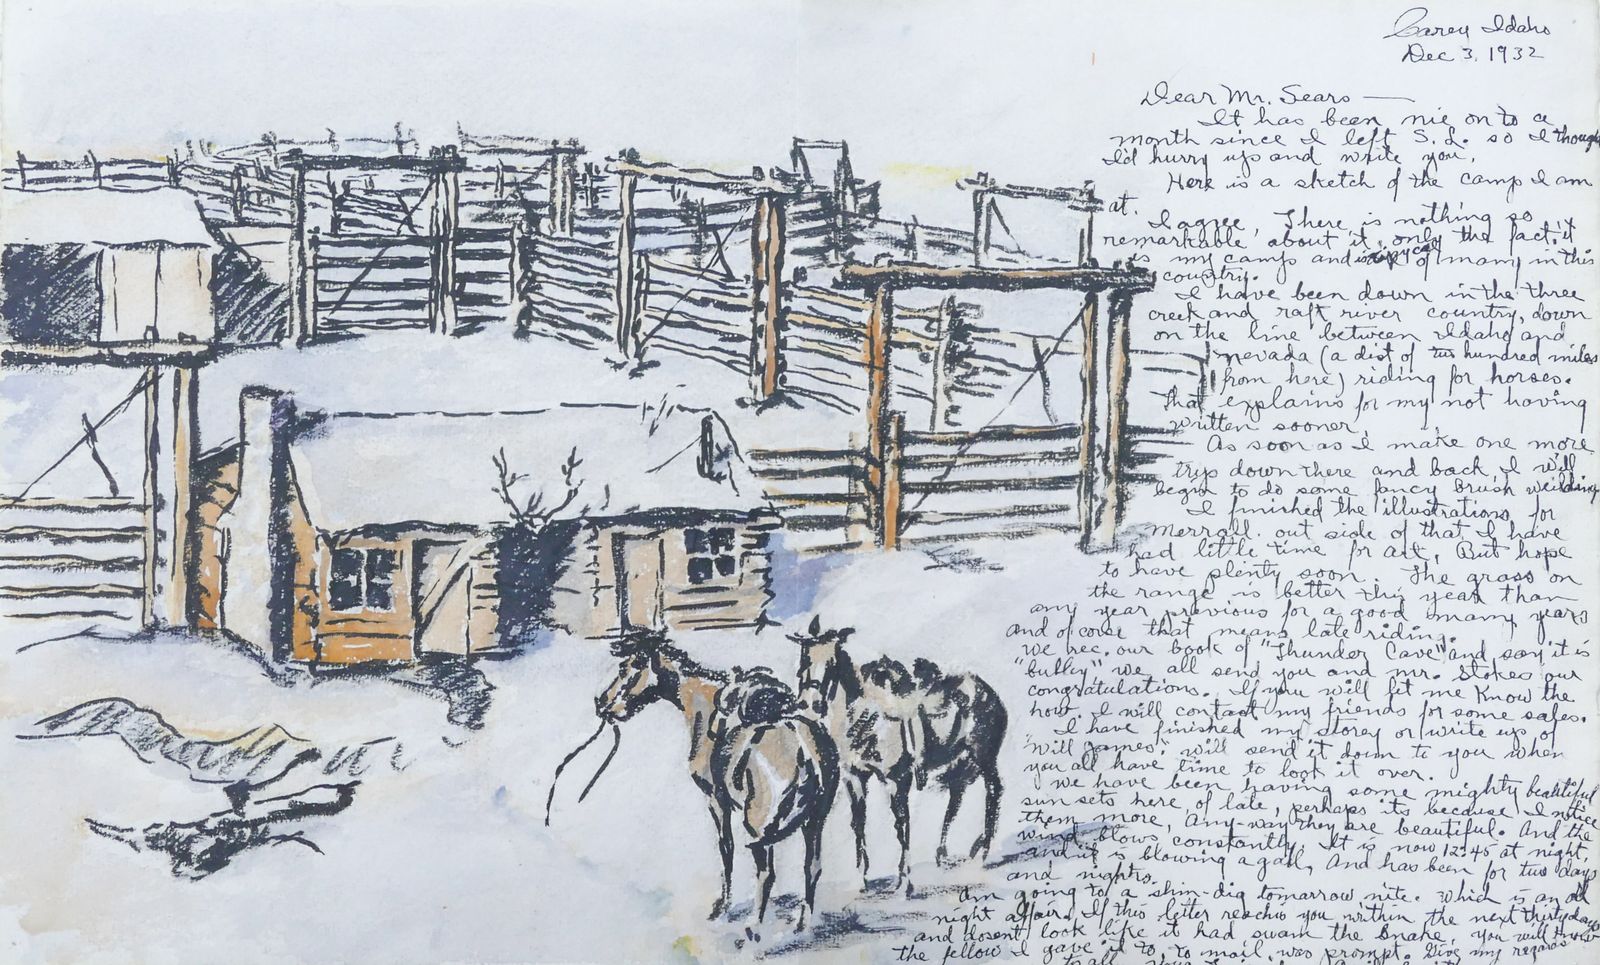 Carey Idaho
Dec 3, 1932
Dear Mr. Sears —
It has been nie on to a
month since I left S. L. so I though
I'd hurry up and write you.
Here is a sketch of the camp I am
at.
I agree, There is nothing so
remarkable about it, only the fact it
is my camp and is typical of many in this
country.
I have been down in the three
creek and raft river country, down
on the line between Idaho and
nevada (a dist of two hundred miles
from here) riding for horses.
That explains for my not having
written sooner.
As soon as I make one more
trip down there and back I will
begin to do some fancy brush weilding
I finished the illustrations for
Merrall. out side of that I have
had little time for art, But hope
to have plenty soon. The grass on
the range is better this year than
any year previous for a good many years
and of corse that means late riding.
We rec. our book of "Thunder Cave" and say it is
"bulley", we all send you and Mr. Stokes our
congratulations. If you will let me know the
how. I will contact my friends for some sales.
I have finished my storey or write up of
"Will James". will send it down to you when
you all have time to look it over.
we have been having some mighty beautiful
sun sets here of late, perhaps its because I notice
them more, any-way they are beautiful. And the
wind blows constantly. It is now 12:45 at night,
and it is blowing a gail, and has been for two days
and nights.
Am going to a shin-dig tomarrow nite. which is an all
night affair. If this letter reachis you within the next thirty days
and dosent look like it had swam the Snake, you will know
the fellow I gave it to, to mail, was prompt. Give my regards
to all.